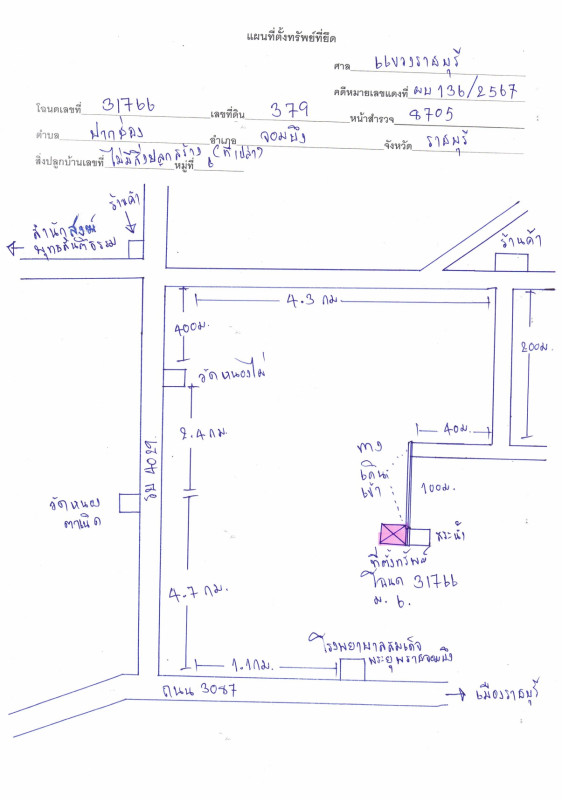 แผนที่ตั้งทรัพย์ที่ยึด
ศาล แขวงราชบุรี
คดีหมายเลขแดงที่ ผบ 136/2567
โฉนดเลขที่ 31766 เลขที่ดิน 379 หน้าสำรวจ 8705
ตำบล ปากช่อง อำเภอ จอมบึง จังหวัด ราชบุรี
สิ่งปลูกบ้านเลขที่ ไม่มีสิ่งปลูกสร้าง (ที่เปล่า) หมู่ที่ 6
ร้านค้า
สำนักสงฆ์
พุทธสันติธรรม
ร้านค้า
4.3 กม
400ม.
200ม.
วัดหนองไผ่
2.4 กม.
40ม.
ทาง
เดิน
เข้า
100ม.
รบ 4029
วัดหนอง
ตาเนิด
สระน้ำ
ที่ตั้งทรัพย์
โฉนด 31766
ม. 6.
4.7 กม.
โรงพยาบาลสมเด็จ
พระยุพราชจอมบึง
1.1 กม.
ถนน 3087
เมืองราชบุรี